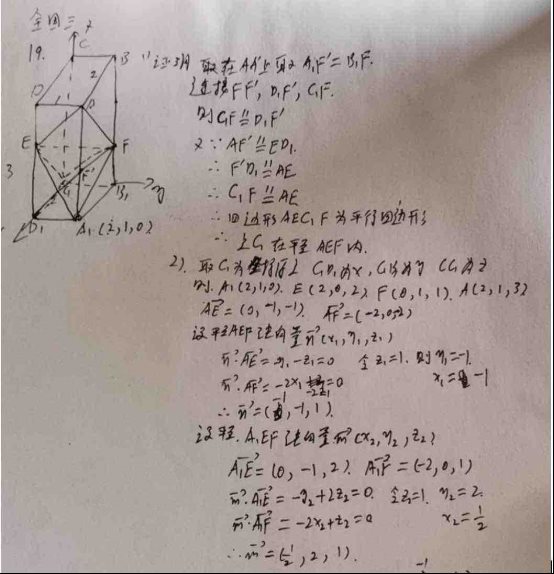 全国三
19.
1)证明 取在AA'上取A₁F'=B₁F.
连接FF', D₁F', C₁F.
则C₁F∥=D₁F'
又∵AF'∥=ED₁.
∴F'D₁∥=AE
∴C₁F∥=AE
∴四边形AEC₁F为平行四边形
∴点C₁在平面AEF内.
2). 取C₁为坐标原点 C₁D₁为x, C₁B₁为y CC₁为z
则. A₁(2,1,0). E(2,0,2) F(0,1,1). A(2,1,3)
AE→=(0,-1,-1). AF→=(-2,0,-2)
设平面AEF法向量n→(x₁,y₁,z₁)
n→·AE→=-y₁-z₁=0 令z₁=1. 则y₁=-1.
n→·AF→=-2x₁-2z₁=0 x₁=-1
∴n→=(-1,-1,1).
设平面A₁EF法向量m→(x₂,y₂,z₂)
A₁E→=(0,-1,2). A₁F→=(-2,0,1)
m→·A₁E→=-y₂+2z₂=0. 令z₂=1, y₂=2.
m→·A₁F→=-2x₂+z₂=0 x₂=1/2
∴m→=(1/2,2,1).
C
B
2
D
A
E
F
F'
3
C₁
B₁
y
D₁
A₁(2,1,0)